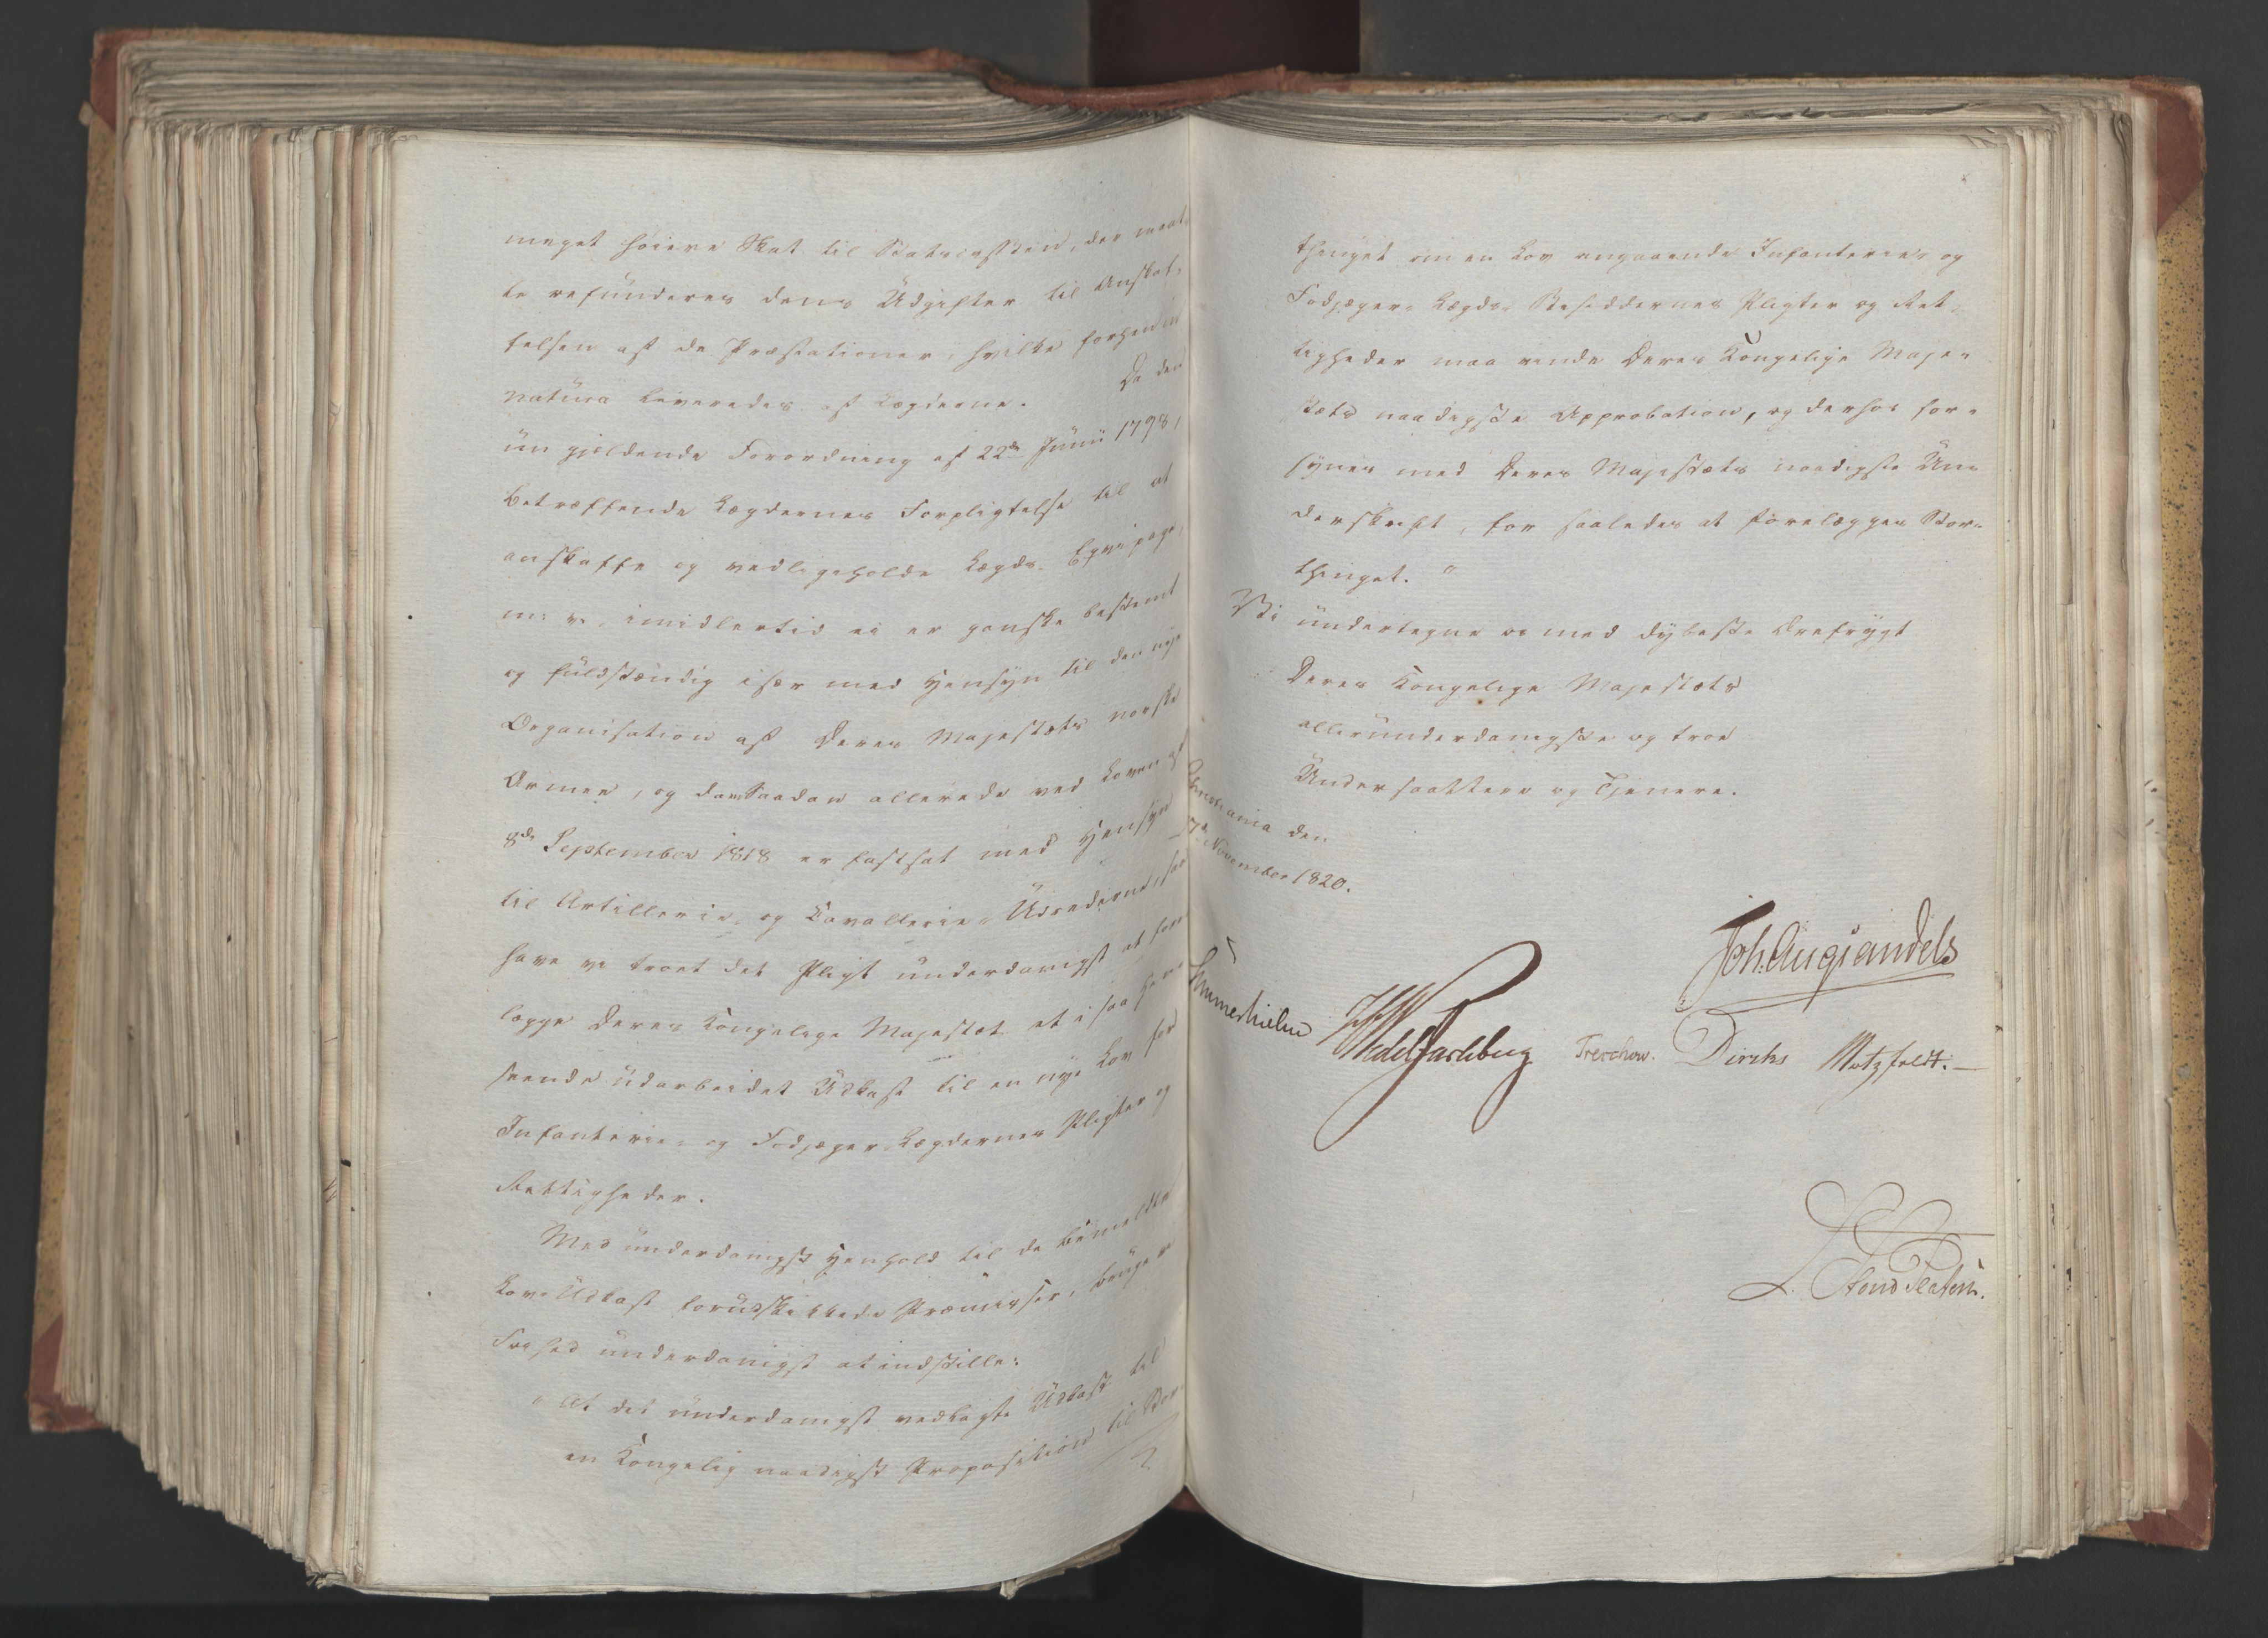 meget høiere Skat til Statscassen, der maat-
te refunderes dens Udgifter til Anskaf-
felsen af de Præstationer, hvilke forhen in
natura leveredes af Lægderne. Da den
nu gjeldende Forordning af 22de Junii 1798,
betræffende Lægdernes Forpligtelse til at
anskaffe og vedligeholde Lægds-Eqvipage,
m: v., imidlertid ei er ganske bestemt
og fuldstændig især med Hensyn til den nye
Organisation af Deres Majestæts norske
Armee, og da en Saadan allerede ved Loven af
8de September 1818 er fastsat med Hensyn
til Artillerie- og Cavallerie-Udrederne, saa
have vi troet det Pligt underdanigst at fore-
lægge Deres Kongelige Majestæt et i saa Hen-
seende udarbeidet Udkast til en nye Lov for
Infanterie- og Fodjæger-Lægdernes Pligter og
Rettigheder.
Med underdanigst Henhold til de bemeldte
Lov-Udkast forudskikkede Præmisser, bruge vi
Frihed underdanigst at indstille:
"At det underdanigst vedlagte Udkast til
en Kongelig naadigst Proposition til Stor-
thinget om en Lov angaaende Infanterie- og
Fodjæger-Lægds-Besiddernes Pligter og Ret-
tigheder maa vinde Deres Kongelige Maje-
stæts naadigste Approbation, og derhos for-
synes med Deres Majestæts naadigste Un-
derskrift, for saaledes at forelægges Stor-
thinget."
Vi undertegne os med dybeste Ærefrygt
Deres Kongelige Majestæts
allerunderdanigste og troe
Undersaattere og Tjenere.
Christiania den
17de November 1820.
Joh. Aug. Sandels
Sommerhielm Wedel Jarlsberg Treschow. Diriks Motzfeldt.
L. Stoud Platou.